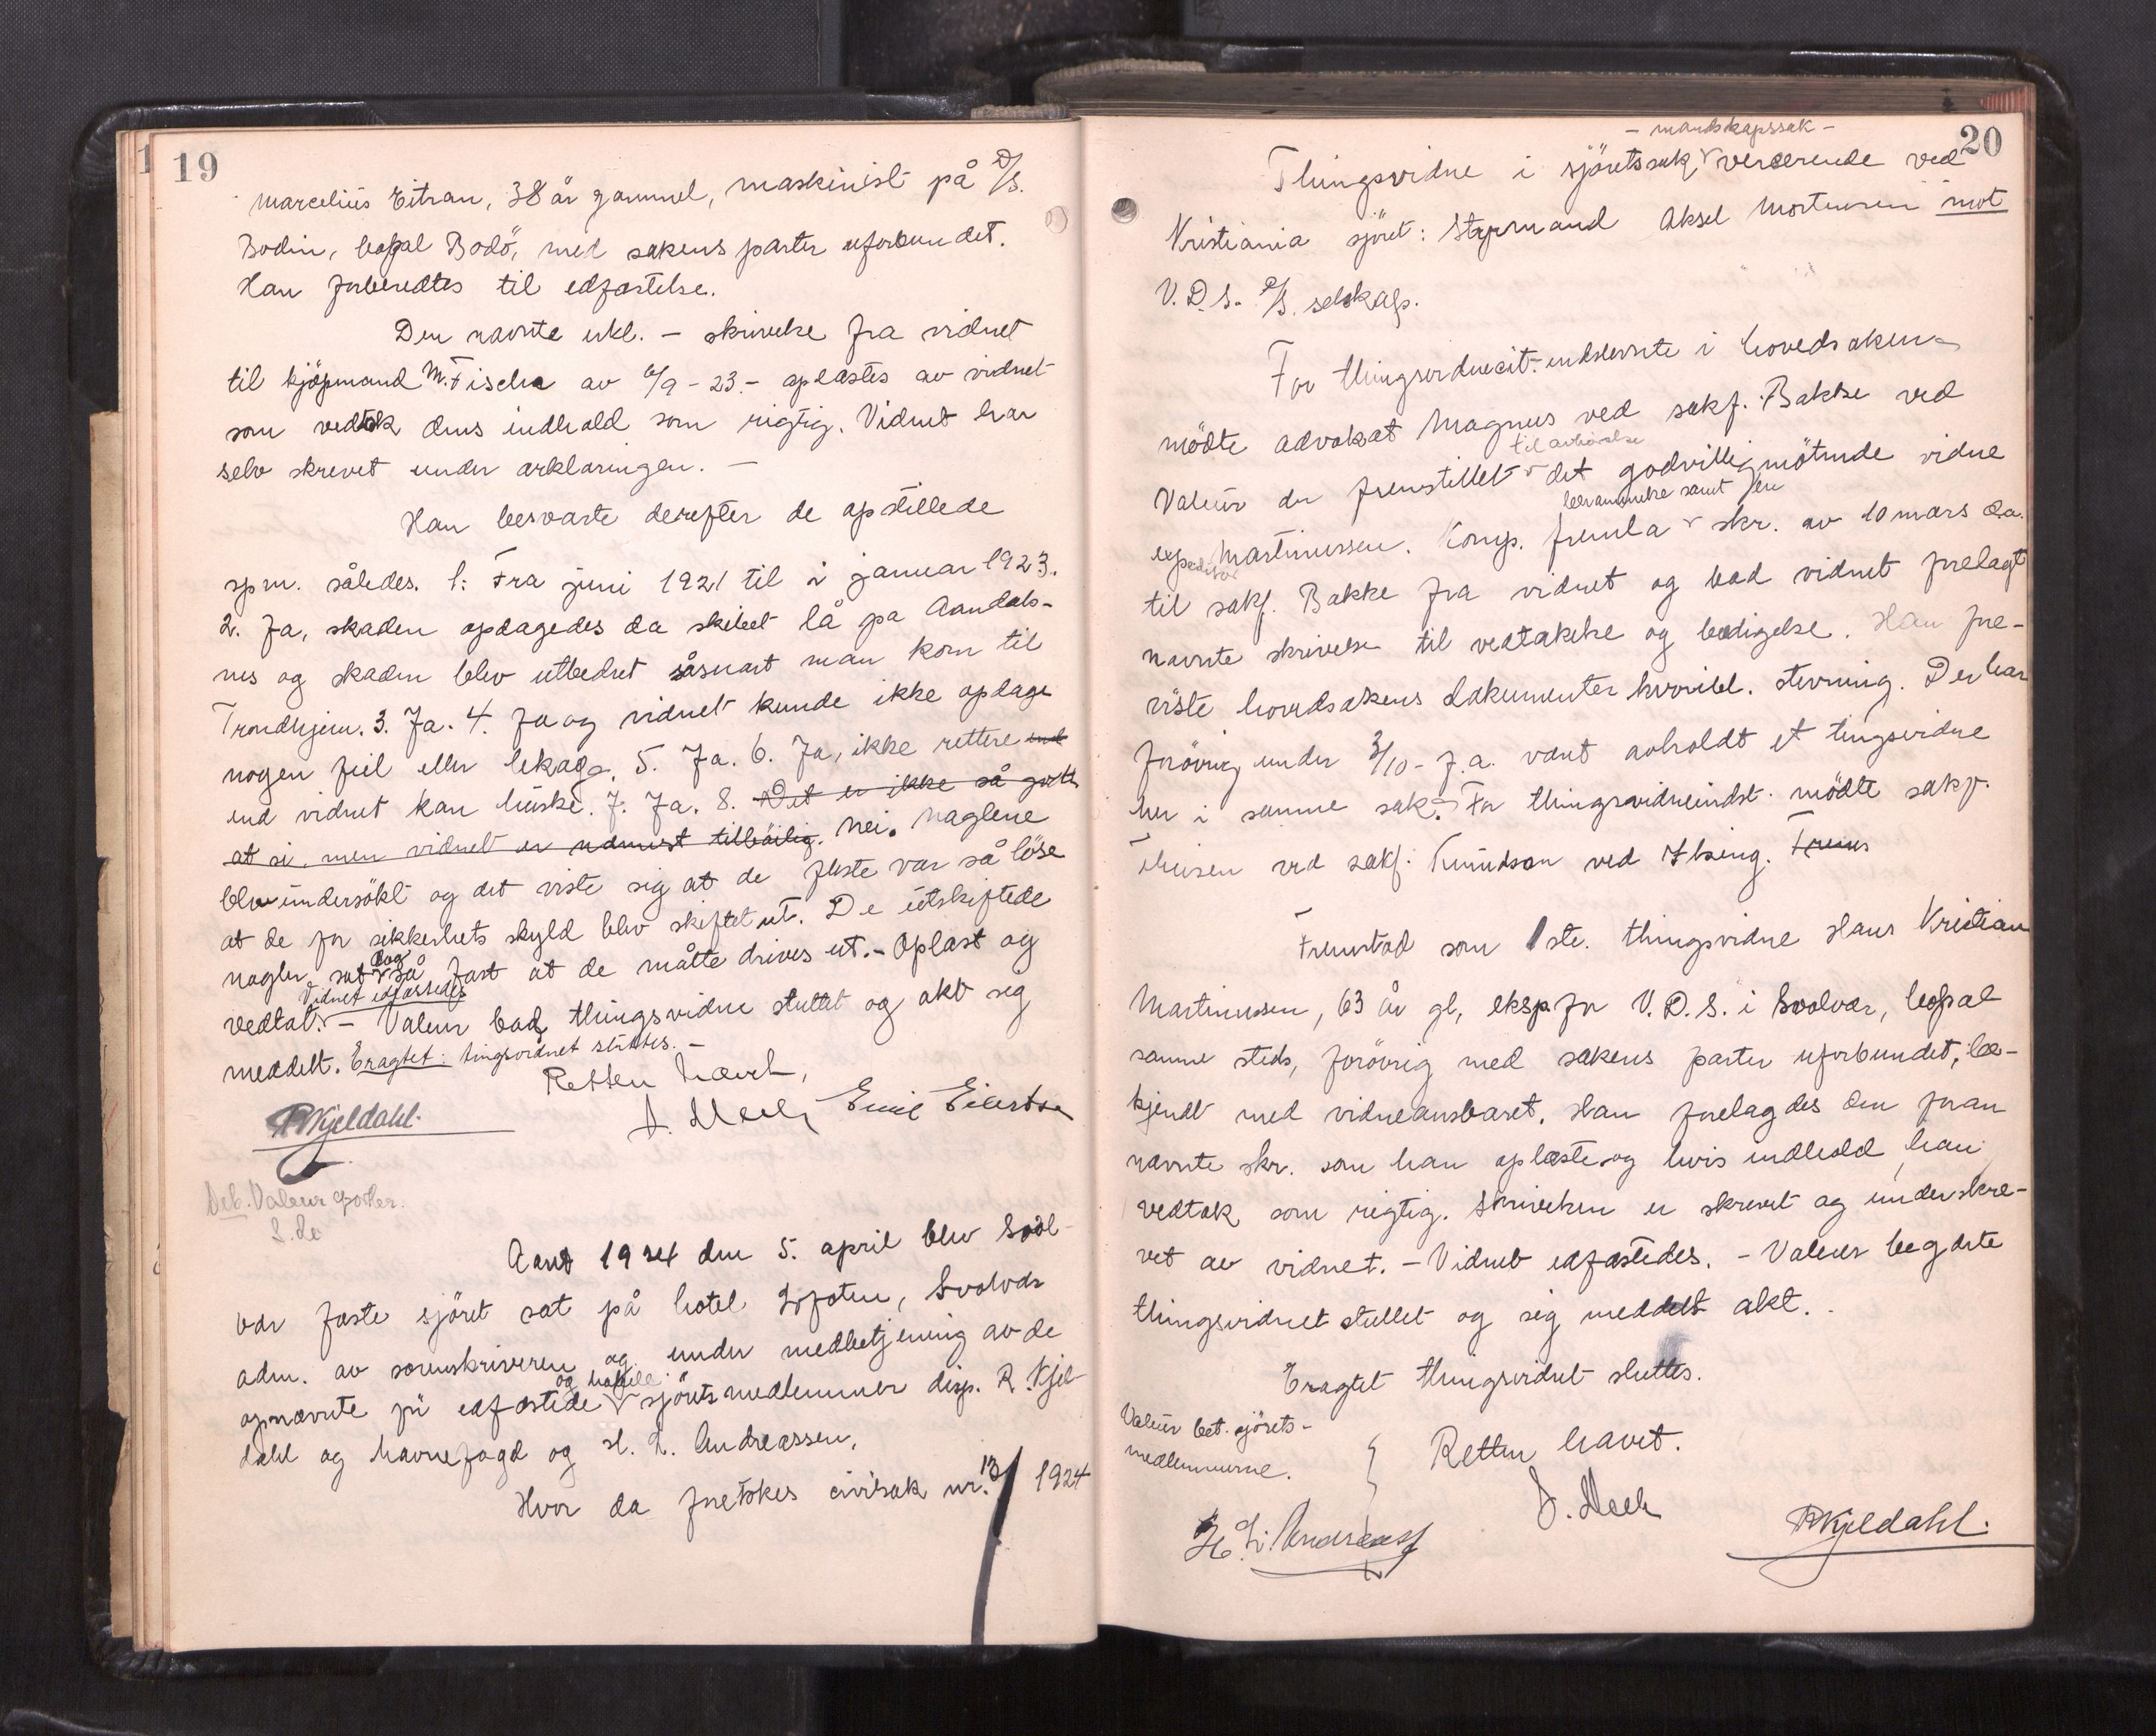 19
Marcelius Eitran, 38 år gammel, maskinist på D/S.
Bodin, bopæl Bodö, med sakens parter uforbundet.
Han forberedtes til edfæstelse.
Den nævnte erkl. – skrivelse fra vidnet
til kjöpmand M. Fischer av 6/9-23 – oplæstes av vidnet
som vedtok dens indhold som rigtig. Vidnet har
selv skrevet under erklæringen. –
Han besvarte derefter de opstillede
spm. således. 1: Fra juni 1921 til i januar 1923.
2. Ja, skaden opdagedes da skibet lå på Aandals-
nes og skaden blev utbedret såsnart man kom til
Trondhjem. 3. Ja. 4. Ja og vidnet kunde ikke opdage
nogen feil eller lekage. 5. Ja. 6. Ja, ikke rettere end
end vidnet kan huske. 7. Ja. 8. Det er ikke så godt
at si, men vidnet er nærmest tilböilig. Nei. Naglene
blev undersökt og det viste sig at de fleste var så löse
at de for sikkerhets skyld blev skiftet ut. De utskiftede
nagler sat dog så fast at de måtte drives ut. – Oplæst og
vedtat. Vidnet edfæstedes – Valeur bad thingsvidne sluttet og akt sig
meddelt. Eragtet: tingsvidnet sluttes. –
Retten hævet,
RKjeldahl. Emil Eilertsen
Deb. Valeur
Aaret 1924 den 5. april blev Svol-
vær faste sjöret sat på hotel Lofoten, Svolvær
adm. av sorenskriveren og under medbetjening av de
opnævnte på edfæstede og habile sjöretsmedlemmer disp. R. Kjel-
dahl og havnefogd og H. L. Andreassen,
Hvor da foretokes civilsak nr. 13/1924
20
Thingsvidne i sjöretssak – mandskapssak – verserende ved
Kristiania sjöret: Styrmand Aksel Mortensen mot
V.D.S. D/S. selskap.
For thingsvidnecit.-indstevnte i hovedsaken
mödte advokat Magnus ved sakf. Bakke ved
Valeur der fremstillet til avhörelse det godvillig mötende vidne
expeditör Martinussen. Komp. fremla berammelse samt en skr. av 10 mars d.a.
til sakf. Bakke fra vidnet og bad vidnet forelagt
nævnte skrivelse til vedtakelse og beedigelse. Han fre-
viste hovedsakens dokumenter hvoribl. stevning. Der har
forövrig under 3/10- f.a. vært avholdt et tingsvidne
her i samme sak. For thingsvidneindst. mödte sakf.
ved sakf. Knudson ved
Fremstod som 1ste. thingsvidne Hans Kristian
Martinussen, 63 år gl, eksp. for V.D.S. i Svolvær, bopæl
samme steds, forövrig med sakens parter uforbundet, be-
kjendt med vidneansvaret. Han forelagdes den foran
nævnte skr. som han oplæste og hvis indhold han
vedtok som rigtig. Skrivelsen er skrevet og underskre-
vet av vidnet. – Vidnet edfæstedes. – Valeur begærte
thingsvidnet sluttet og sig meddelt akt.
Eragtet thingsvidnet sluttes.
Valeur bet. sjörets-
medlemmerne.
Retten hævet.
H. L. Andreassen RKjeldahl.